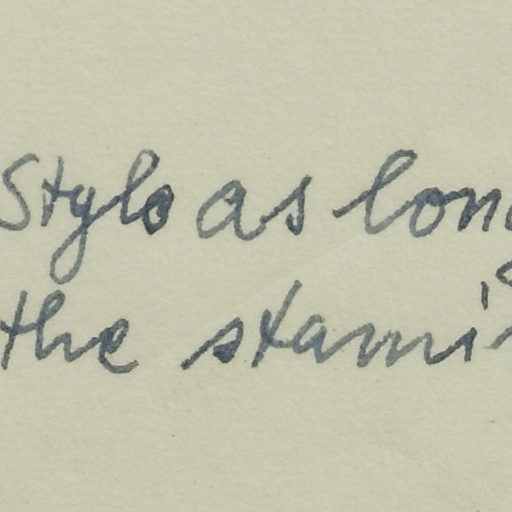 Stylo as long
the stami